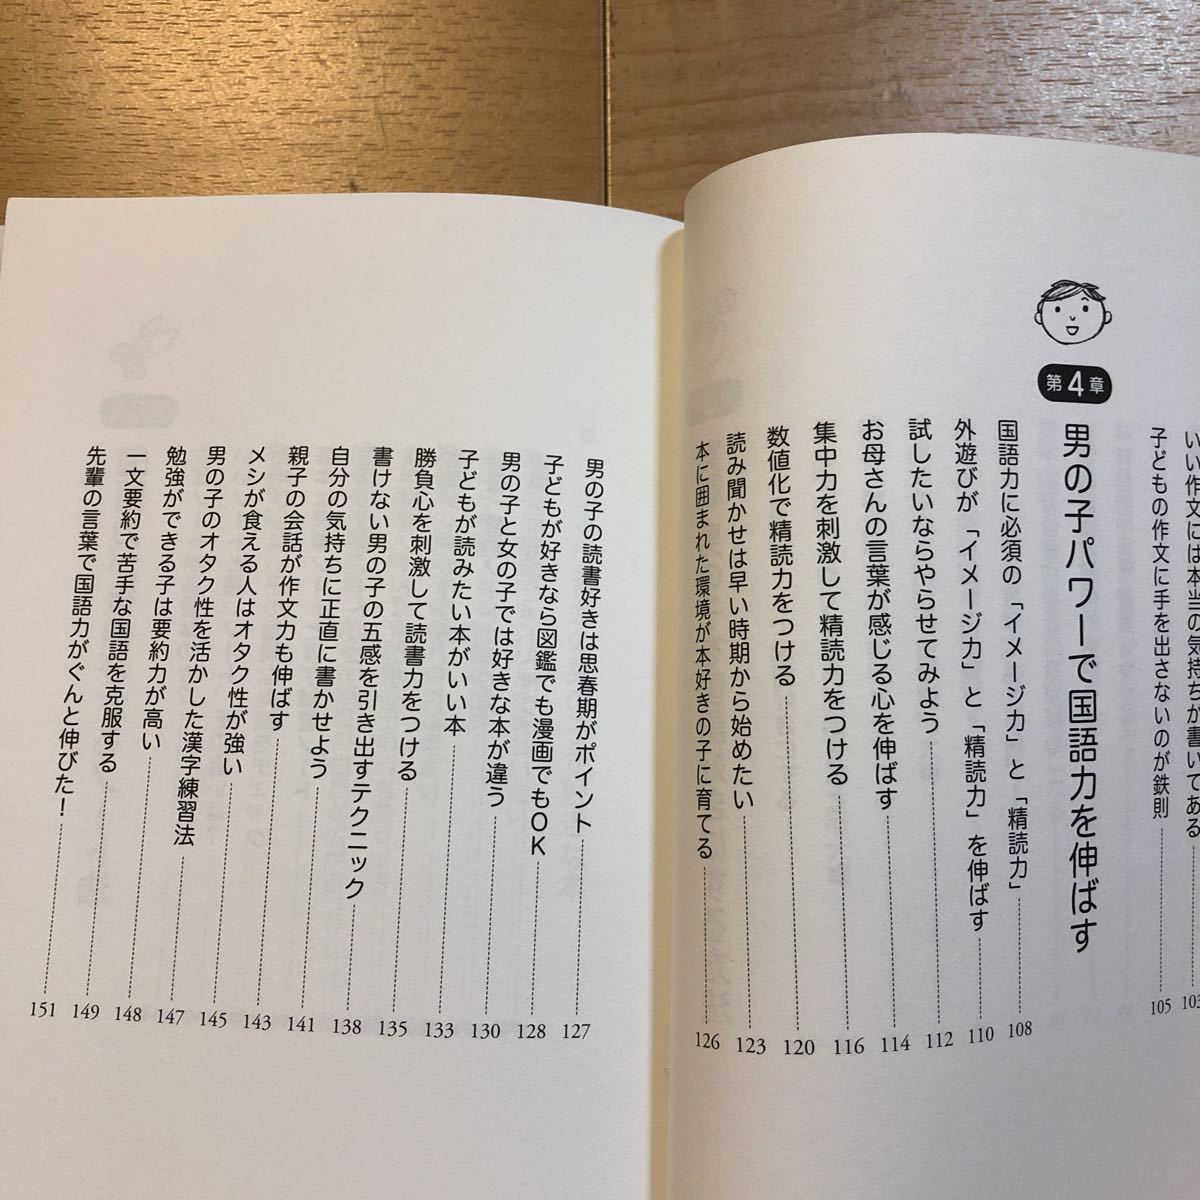 いい作文には本当の気持ちが書いてある 103
子どもの作文に手を出さないのが鉄則 105
第4章
男の子パワーで国語力を伸ばす
国語力に必須の「イメージ力」と「精読力」 108
外遊びが「イメージ力」と「精読力」を伸ばす 110
試したいならやらせてみよう 112
お母さんの言葉が感じる心を伸ばす 114
集中力を刺激して精読力をつける 116
数値化で精読力をつける 120
読み聞かせは早い時期から始めたい 123
本に囲まれた環境が本好きの子に育てる 126
男の子の読書好きは思春期がポイント 127
子どもが好きなら図鑑でも漫画でもOK 128
男の子と女の子では好きな本が違う 130
子どもが読みたい本がいい本 133
勝負心を刺激して読書力をつける 135
書けない男の子の五感を引き出すテクニック 138
自分の気持ちに正直に書かせよう 141
親子の会話が作文力も伸ばす 143
メシが食える人はオタク性が強い 145
男の子のオタク性を活かした漢字練習法 147
勉強ができる子は要約力が高い 148
一文要約で苦手な国語を克服する 149
先輩の言葉で国語力がぐんと伸びた! 151